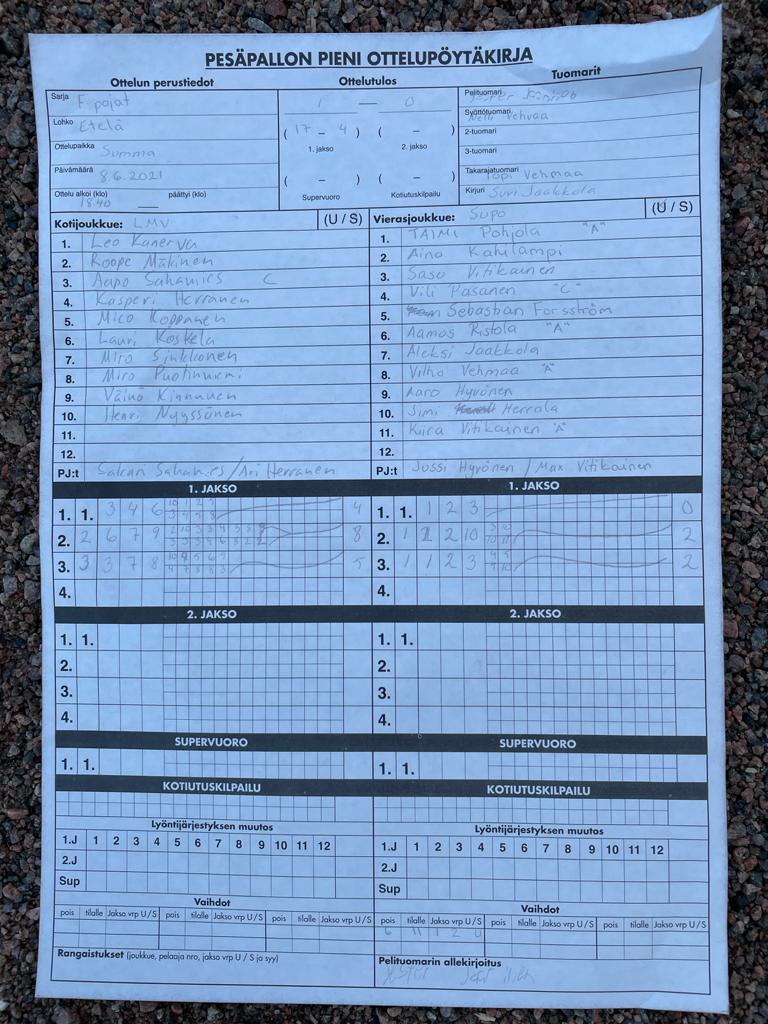 PESÄPALLON PIENI OTTELUPÖYTÄKIRJA
Ottelun perustiedot
Ottelutulos
Tuomarit
Sarja F-pojat
Lohko Etelä
Ottelupaikka Summa
Päivämäärä 8.6.2021
Ottelu alkoi (klo) 18.40 päättyi (klo)
1 — 0
( 17 - 4 ) ( - )
1. jakso 2. jakso
( - ) ( - )
Supervuoro Kotiutuskilpailu
Pelituomari
Syöttötuomari Nelli Vehvaa
2-tuomari
3-tuomari
Takarajatuomari Topi Vehmaa
Kirjuri Suvi Jaakkola
Kotijoukkue: LMV (U / S)
1. Leo Kanerva
2. Roope Mäkinen
3. Aapo Sahamies C
4. Kasperi Herranen
5. Mico Koppanen
6. Lauri Koskela
7. Miro Sinkkonen
8. Miro Puotinurmi
9. Väinö Kinnunen
10. Henri Nyyssönen
11.
12.
PJ:t Sakari Sahamies / Ari Herranen
Vierasjoukkue: SuPo (U / S)
1. TAIMI Pohjola "A"
2. Aino Kahilampi
3. Sasu Vitikainen
4. Vili Pasanen "C"
5. Sebastian Forsström
6. Aamos Ristola "A"
7. Aleksi Jaakkola
8. Vilho Vehmaa "A"
9. Aaro Hyvönen
10. Simi Herrala
11. Kiira Vitikainen "A"
12.
PJ:t Jussi Hyvönen / Max Vitikainen
1. JAKSO
1. 1. 3 4 6 4
2. 2 6 7 9 8
3. 3 3 7 8 5
4.
1. JAKSO
1. 1. 1 2 3 0
2. 1 1 2 10 2
3. 1 1 2 3 2
4.
2. JAKSO
1. 1.
2.
3.
4.
2. JAKSO
1. 1.
2.
3.
4.
SUPERVUORO
1. 1.
SUPERVUORO
1. 1.
KOTIUTUSKILPAILU
KOTIUTUSKILPAILU
Lyöntijärjestyksen muutos
1.J 1 2 3 4 5 6 7 8 9 10 11 12
2.J
Sup
Lyöntijärjestyksen muutos
1.J 1 2 3 4 5 6 7 8 9 10 11 12
2.J
Sup
Vaihdot
pois tilalle Jakso vrp U / S pois tilalle Jakso vrp U / S pois tilalle Jakso vrp U / S
Vaihdot
pois tilalle Jakso vrp U / S pois tilalle Jakso vrp U / S pois tilalle Jakso vrp U / S
6 11 1 2 U
Rangaistukset (joukkue, pelaaja nro, jakso vrp U / S ja syy)
Pelituomarin allekirjoitus